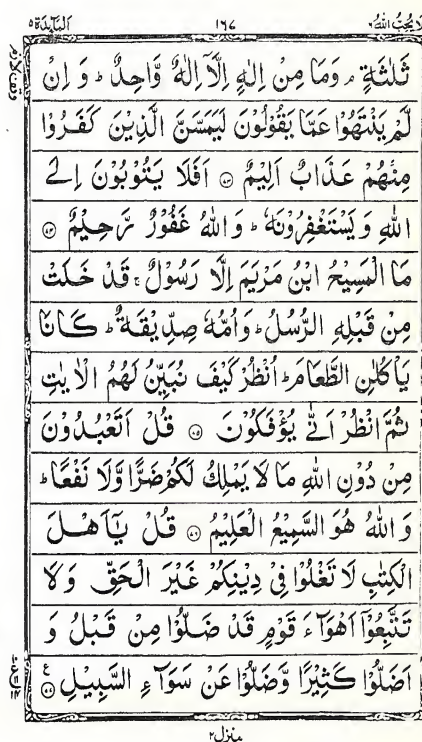 لَا يُحِبُّ اللّٰهُ ٦ ١٦٧ اَلْمَآئِدَة ٥
ثَلٰثَةٍ ۘ وَمَا مِنْ اِلٰهٍ اِلَّاۤ اِلٰهٌ وَّاحِدٌ ؕ وَ اِنْ
لَّمْ يَنْتَهُوْا عَمَّا يَقُوْلُوْنَ لَيَمَسَّنَّ الَّذِيْنَ كَفَرُوْا
مِنْهُمْ عَذَابٌ اَلِيْمٌ ۝ اَفَلَا يَتُوْبُوْنَ اِلَى
اللّٰهِ وَ يَسْتَغْفِرُوْنَهٗ ؕ وَ اللّٰهُ غَفُوْرٌ رَّحِيْمٌ ۝
مَا الْمَسِيْحُ ابْنُ مَرْيَمَ اِلَّا رَسُوْلٌ ۚ قَدْ خَلَتْ
مِنْ قَبْلِهِ الرُّسُلُ ؕ وَ اُمُّهٗ صِدِّيْقَةٌ ؕ كَانَا
يَاْكُلٰنِ الطَّعَامَ ؕ اُنْظُرْ كَيْفَ نُبَيِّنُ لَهُمُ الْاٰيٰتِ
ثُمَّ انْظُرْ اَنّٰى يُؤْفَكُوْنَ ۝ قُلْ اَتَعْبُدُوْنَ
مِنْ دُوْنِ اللّٰهِ مَا لَا يَمْلِكُ لَكُمْ ضَرًّا وَّلَا نَفْعًا ؕ
وَ اللّٰهُ هُوَ السَّمِيْعُ الْعَلِيْمُ ۝ قُلْ يٰۤاَهْلَ
الْكِتٰبِ لَا تَغْلُوْا فِيْ دِيْنِكُمْ غَيْرَ الْحَقِّ وَ لَا
تَتَّبِعُوْۤا اَهْوَآءَ قَوْمٍ قَدْ ضَلُّوْا مِنْ قَبْلُ وَ
اَضَلُّوْا كَثِيْرًا وَّ ضَلُّوْا عَنْ سَوَآءِ السَّبِيْلِ ۝ ع
منزل ٢